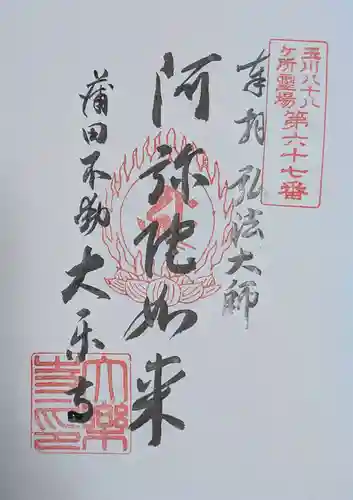 玉川八十八
ケ所霊場第六十七番
奉拝 弘法大師
阿弥陀如来
蒲田不動 大楽寺
大楽
寺印